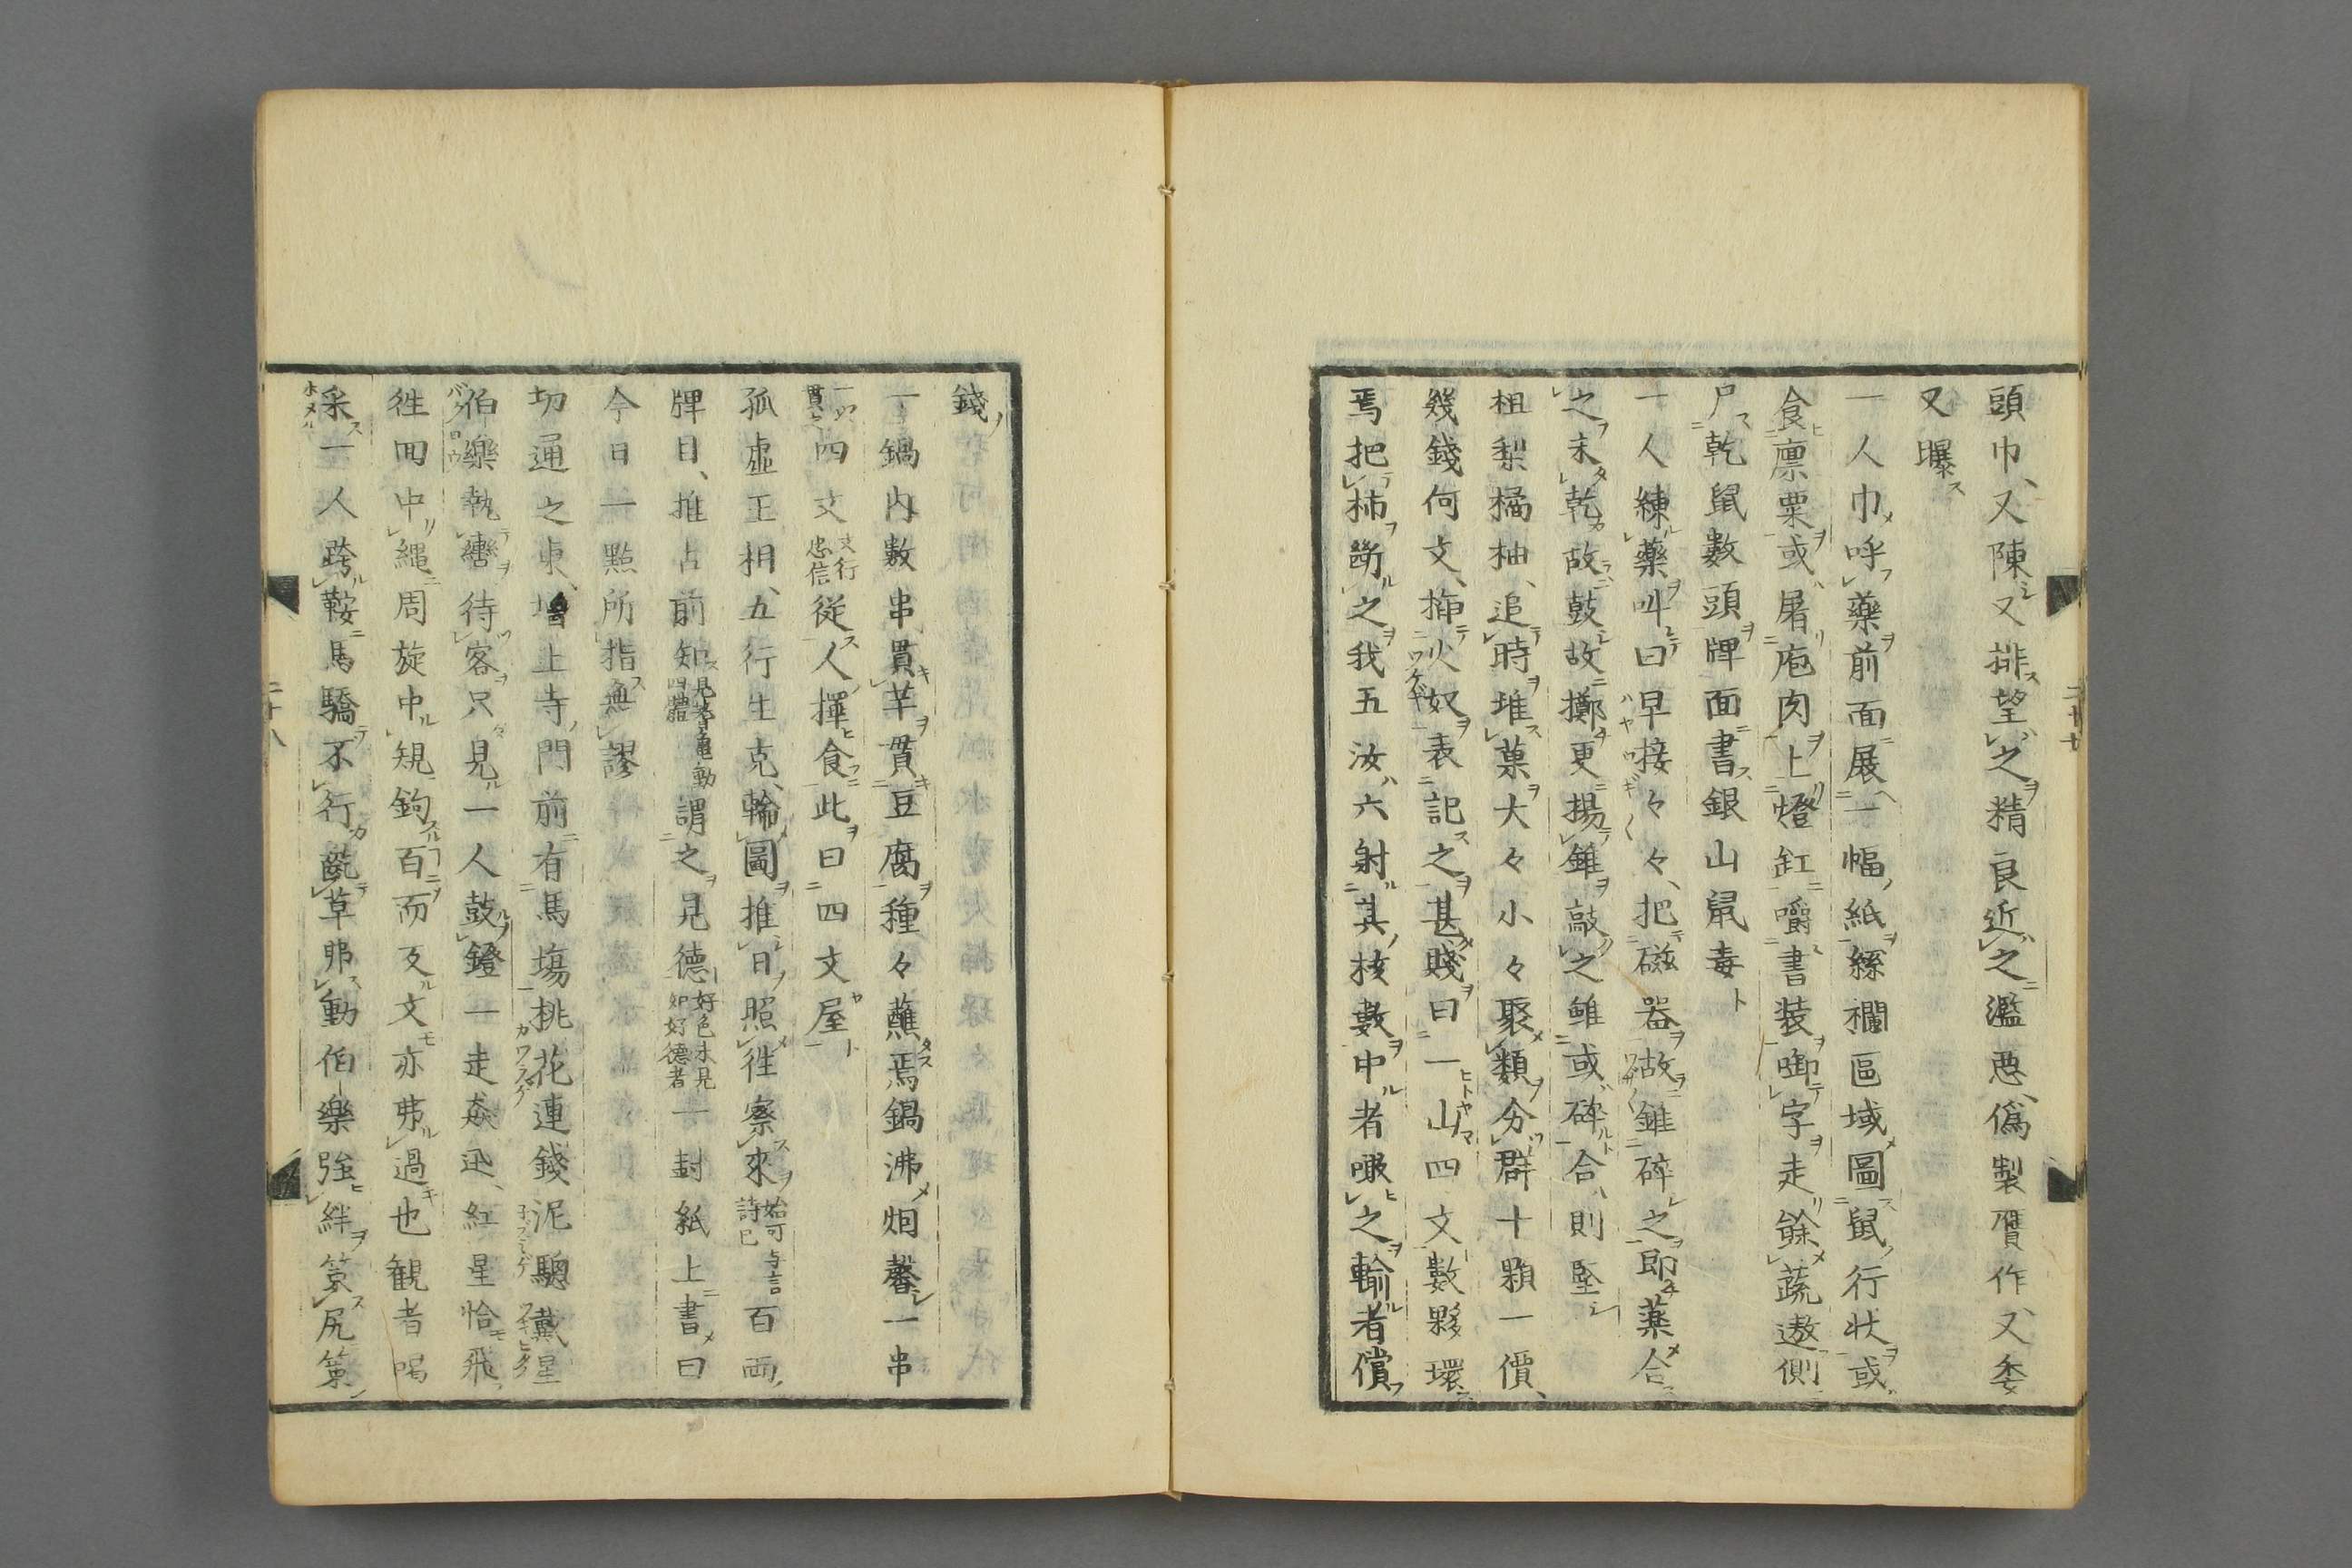 頭巾、又陳又排望之精良近之濫惡、偽製贋作、又委
又曝
一人巾呼藥前面展一幅紙縹欄區域圖鼠行狀或
食廩粟或屠庖肉上燈缸嚼書装啣字走餘蔬遨側
尸乾鼠數頭牌面書銀山鼠毒
一人練藥叫曰早接々々、把磁器故錐碎之即藥合
之未乾故鼓故擲更揚錐敲之雖或碎合、則堅
柤梨橘柚、追時堆菓大々小々聚類分群十顆一價、
幾錢何文、揷火奴表記之甚賤曰一山四文數夥環
焉把柿斷之我五汝六射其核數中者噉之輸者償
二十七
錢
一鍋内數串貫芋貫豆腐種々蘸焉鍋沸烟馨一串
一以貫之四文文行忠信從人擇食此曰四文屋
孤虚王相、五行生克、輪圖推日照徃察來始可与言詩已百兩
牌曰、推占前知見著龜動四體謂之見德好色未見如好德者一封紙上書曰
今日一點所指無謬
切通之東、増上寺門前有馬塲桃花連錢泥驄戴星
伯樂執轡待客只見一人鼓鐙一走猋迅、紅星恰飛
徃囬中繩周旋中規鉤百而反文亦弗過也觀者喝
采一人跨鞍馬驕不行齕草弗動伯樂強絆策尻策
二十八